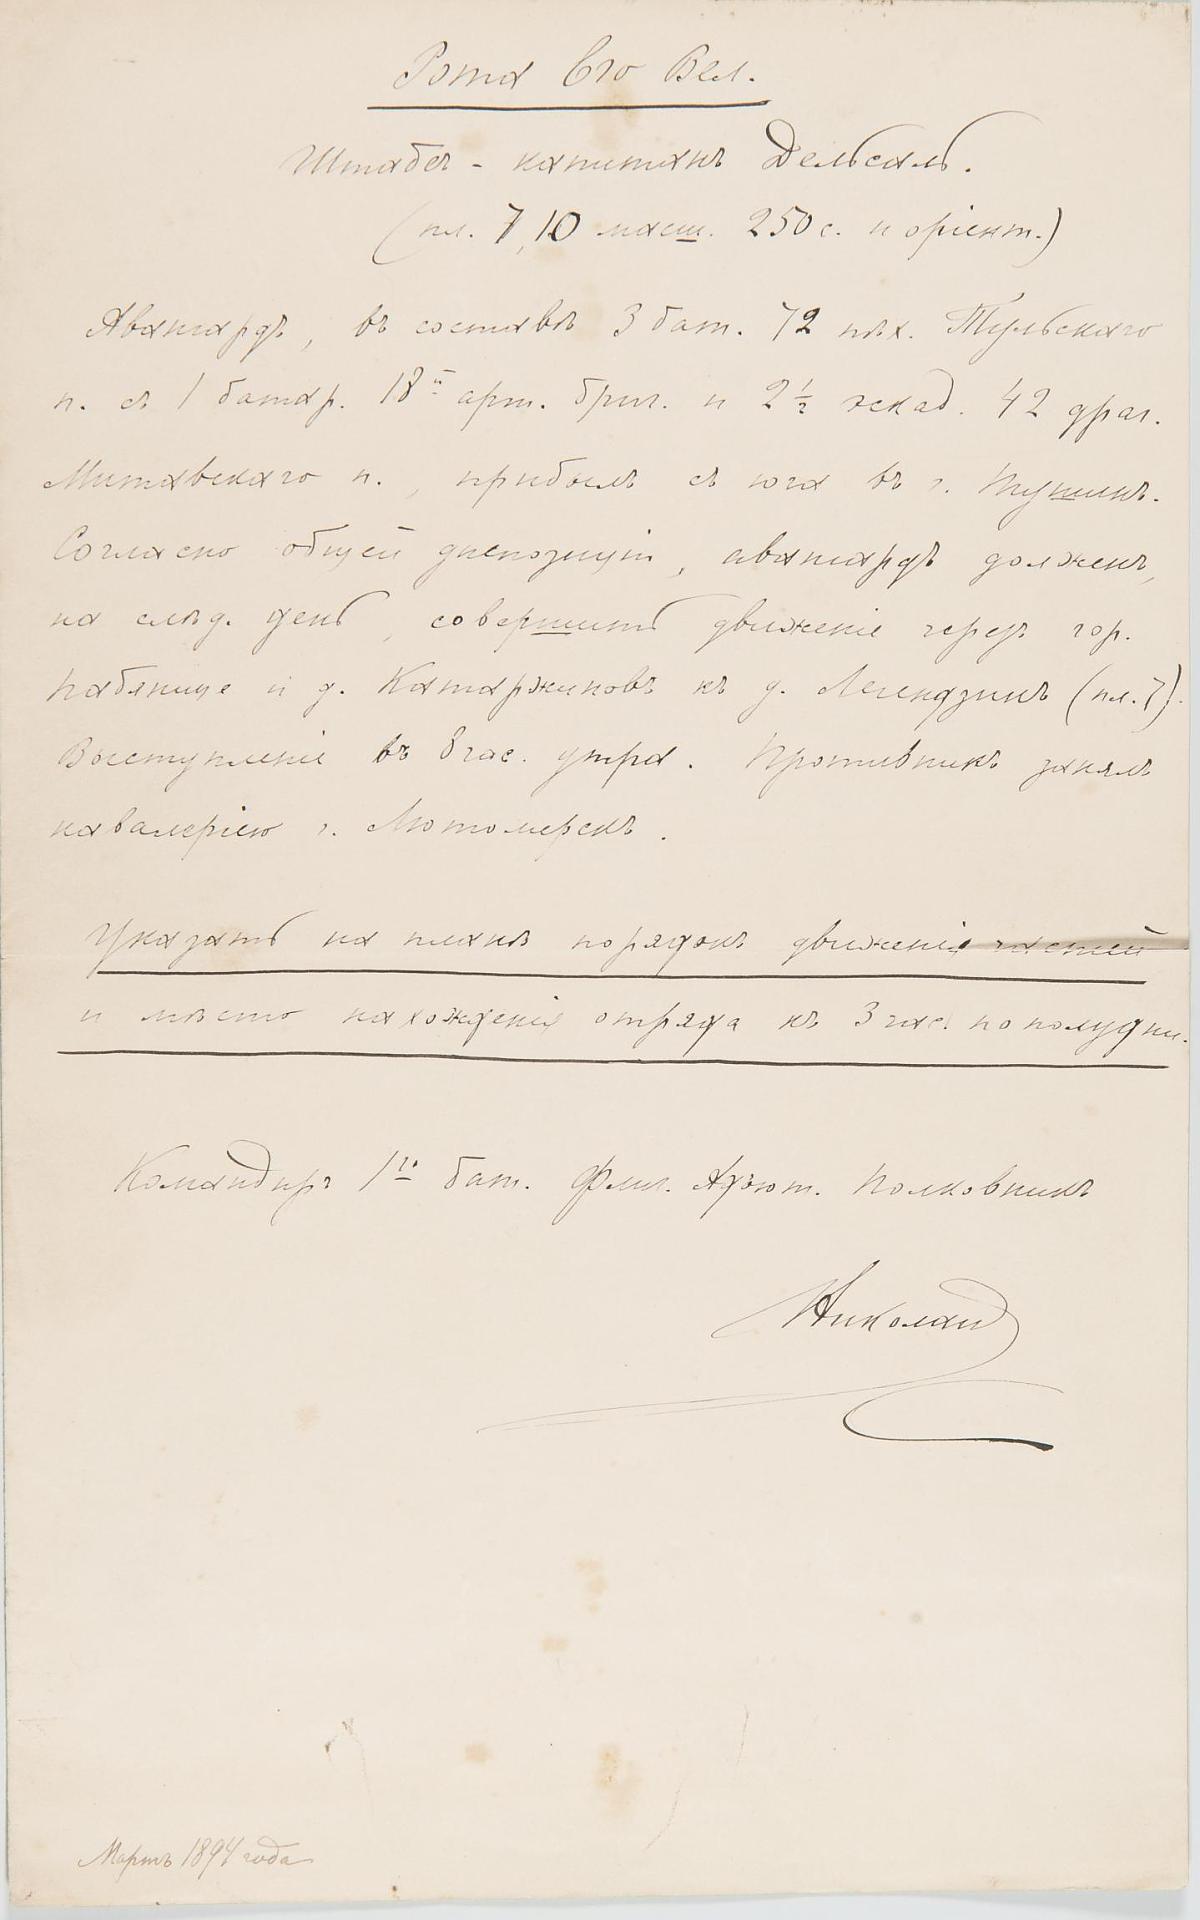 Рота Его Вел.
Штабсъ - капитанъ Дельсаль.
(пл. 7, 10 масш. 250 с. и оріент.)
Авангардъ, въ составѣ 3 бат. 72 пѣх. Тульскаго
п. съ 1 батар. 18й арт. бриг. и 2½ эскад. 42 драг.
Митавскаго п., прибылъ съ юга въ г. Тушинъ.
Согласно общей диспозиціи, авангардъ долженъ,
на слѣд. день, совершить движеніе черезъ гор.
Пабянице и д. Катаржиновъ къ д. (пл. 7).
Выступленіе въ 8 час. утра. Противникъ занялъ
кавалеріею г. Лютомерскъ.
Указать на планѣ порядокъ движенія частей
и мѣсто нахожденія отряда къ 3 час. пополудни.
Командиръ 1го бат. Флиг. Адъют. Полковникъ
Николай
Мартъ 1894 года